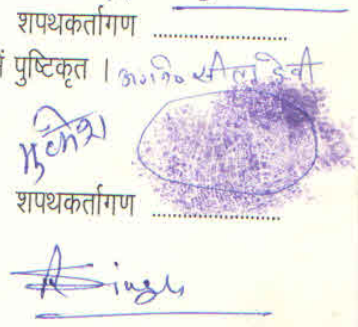 शपथकर्तागण ......................
पुष्टिकृत । अ०नि० शीला देवी
मुकेश
शपथकर्तागण ......................
Singh